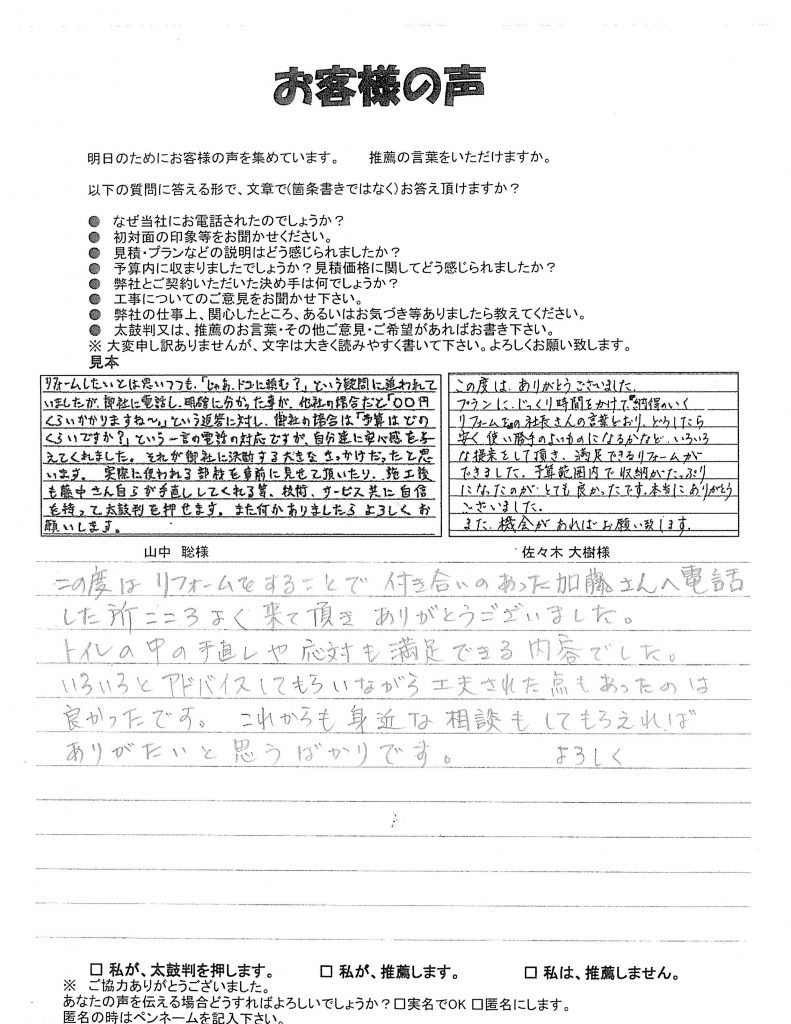 お客様の声
明日のためにお客様の声を集めています。　推薦の言葉をいただけますか。
以下の質問に答える形で、文章で(箇条書きではなく)お答え頂けますか？
● なぜ当社にお電話されたのでしょうか？
● 初対面の印象等をお聞かせください。
● 見積・プランなどの説明はどう感じられましたか？
● 予算内に収まりましたでしょうか？見積価格に関してどう感じられましたか？
● 弊社とご契約いただいた決め手は何でしょうか？
● 工事についてのご意見をお聞かせ下さい。
● 弊社の仕事上、関心したところ、あるいはお気づき等ありましたら教えてください。
● 太鼓判又は、推薦のお言葉・その他ご意見・ご希望があればお書き下さい。
※ 大変申し訳ありませんが、文字は大きく読みやすく書いて下さい。よろしくお願い致します。
見本
リフォームしたいとは思いつつも、「じゃあ、ドコに頼む？」という疑問に追われて
いましたが、御社に電話し、明確に分かった事が、他社の場合だと「〇〇円
くらいかかりますね〜」という返答に対し、御社の場合は「予算はどの
くらいですか？」という一言の電話の対応ですが、自分達に安心感を与
えてくれました。それが御社に決断する大きなきっかけだったと思
います。実際に使われる部材を事前に見せて頂いたり、施工後
も藤中さん自らが手直ししてくれる等、技術、サービス共に自信
を持って太鼓判を押せます。また何かありましたらよろしくお
願いします。
山中　聡様
この度は、ありがとうございました。
プランに、じっくり時間をかけて“納得のいく
リフォームを”の社長さんの言葉どおり、どうしたら
安く使い勝手のよいものになるかなど、いろいろ
な提案をして頂き、満足できるリフォームが
できました。予算範囲内で収納がたっぷり
になったのが、とても良かったです。本当にありがとう
ございました。
また、機会があればお願い致します。
佐々木 大樹様
この度はリフォームをすることで付き合いのあった加藤さんへ電話
した所こころよく来て頂きありがとうございました。
トイレの中の手直しや応対も満足できる内容でした。
いろいろとアドバイスしてもらいながら工夫された点もあったのは
良かったです。これからも身近な相談もしてもらえれば
ありがたいと思うばかりです。　よろしく
□ 私が、太鼓判を押します。　□ 私が、推薦します。　□ 私は、推薦しません。
※ ご協力ありがとうございました。
あなたの声を伝える場合どうすればよろしいでしょうか？□実名でOK □匿名にします。
匿名の時はペンネームを記入下さい。